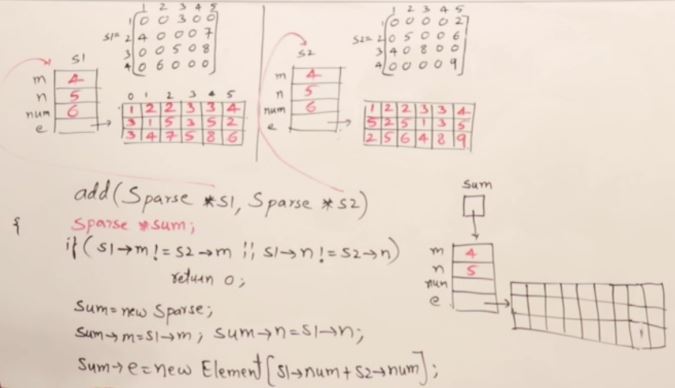 1 2 3 4 5
S1= 1 0 0 3 0 0
2 4 0 0 0 7
3 0 0 5 0 8
4 0 6 0 0 0
S1
m 4
n 5
num 6
e
0 1 2 3 4 5
1 2 2 3 3 4
3 1 5 3 5 2
3 4 7 5 8 6
1 2 3 4 5
1 0 0 0 0 2
S2= 2 0 5 0 0 6
3 4 0 8 0 0
4 0 0 0 0 9
S2
m 4
n 5
num 6
e
1 2 2 3 3 4
5 2 5 1 3 5
2 5 6 4 8 9
add(Sparse *S1, Sparse *S2)
{ Sparse *sum;
if(S1→m != S2→m || S1→n != S2→n)
return 0;
Sum=new Sparse;
Sum→m=S1→m; Sum→n=S1→n;
Sum→e=new Element[S1→num+S2→num];
Sum
m 4
n 5
num
e